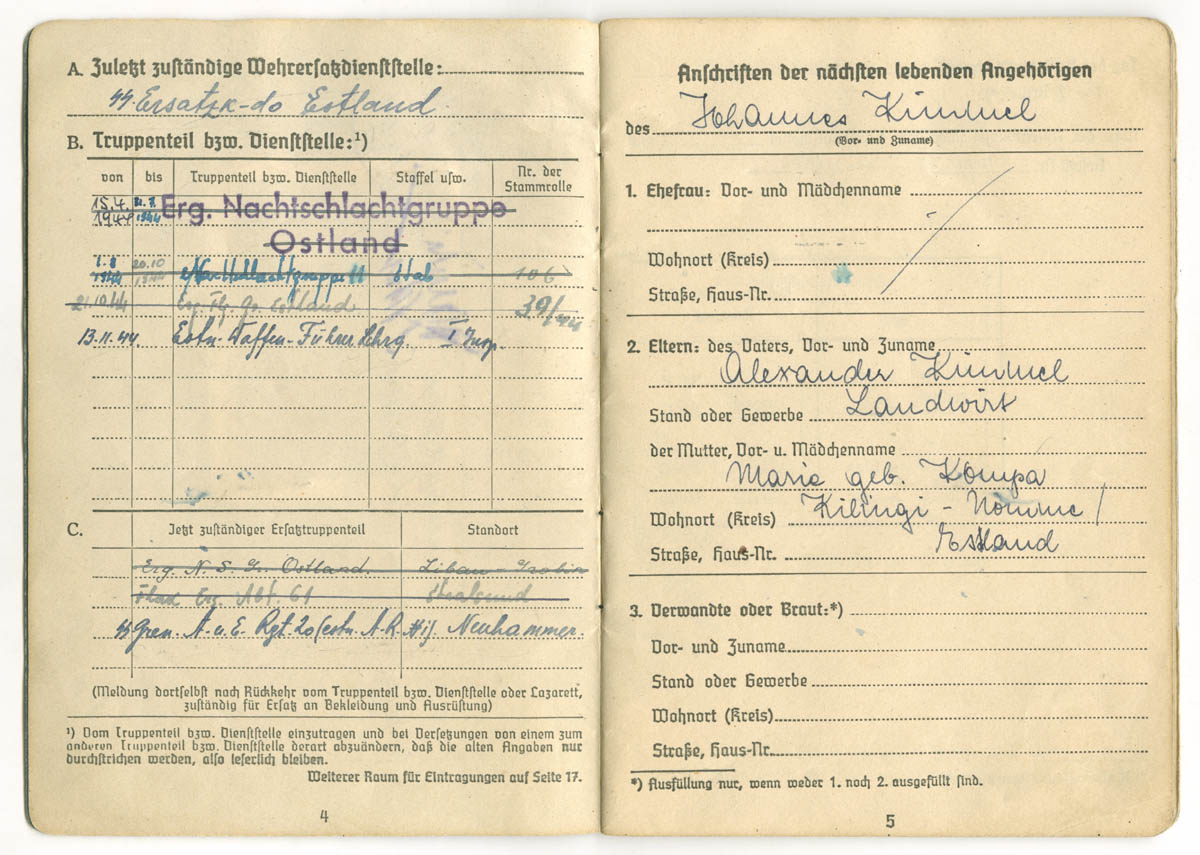 A. Zuletzt zuständige Wehrersatzdienststelle:
SS Ersatzk-do Estland
B. Truppenteil bzw. Dienststelle:¹)
von bis Truppenteil bzw. Dienststelle Staffel usw. Nr. der Stammrolle
15.4. 1944 31.7. 1944 Erg. Nachtschlachtgruppe
Ostland
1.8 1944 20.10 1944 Nachtschlachtgruppe 11 Stab 106
21.10.44 Erg. Fl. Gr. Estland 39/44
13.11.44. Estn. Waffen-Führer Lehrg. I Insp.
C. Jetzt zuständiger Ersatztruppenteil Standort
Erg. N. S. Gr. Ostland. Libau-Grobin
Flak Erg. Abt. 61 Stralsund
SS Gren. A. u. E. Rgt 20 (estn. A.R. #1). Neuhammer.
(Meldung dortselbst nach Rückkehr vom Truppenteil bzw. Dienststelle oder Lazarett,
zuständig für Ersatz an Bekleidung und Ausrüstung)
¹) Vom Truppenteil bzw. Dienststelle einzutragen und bei Versetzungen von einem zum
anderen Truppenteil bzw. Dienststelle derart abzuändern, daß die alten Angaben nur
durchstrichen werden, also leserlich bleiben.
Weiterer Raum für Eintragungen auf Seite 17.
4
Anschriften der nächsten lebenden Angehörigen
des Johannes Kimmel
(Vor- und Zuname)
1. Ehefrau: Vor- und Mädchenname
Wohnort (Kreis)
Straße, Haus-Nr.
2. Eltern: des Vaters, Vor- und Zuname
Alexander Kimmel
Stand oder Gewerbe Landwirt
der Mutter, Vor- u. Mädchenname
Marie geb. Kompa
Wohnort (Kreis) Kilingi-Nomme/
Straße, Haus-Nr. Estland
3. Verwandte oder Braut:*)
Vor- und Zuname
Stand oder Gewerbe
Wohnort (Kreis)
Straße, Haus-Nr.
*) Ausfüllung nur, wenn weder 1. noch 2. ausgefüllt sind.
5